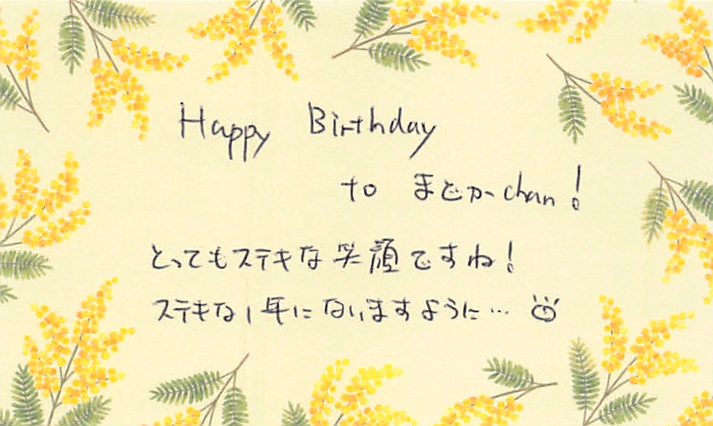 Happy Birthday
to まどかchan!
とってもステキな笑顔ですね!
ステキな1年になりますように…